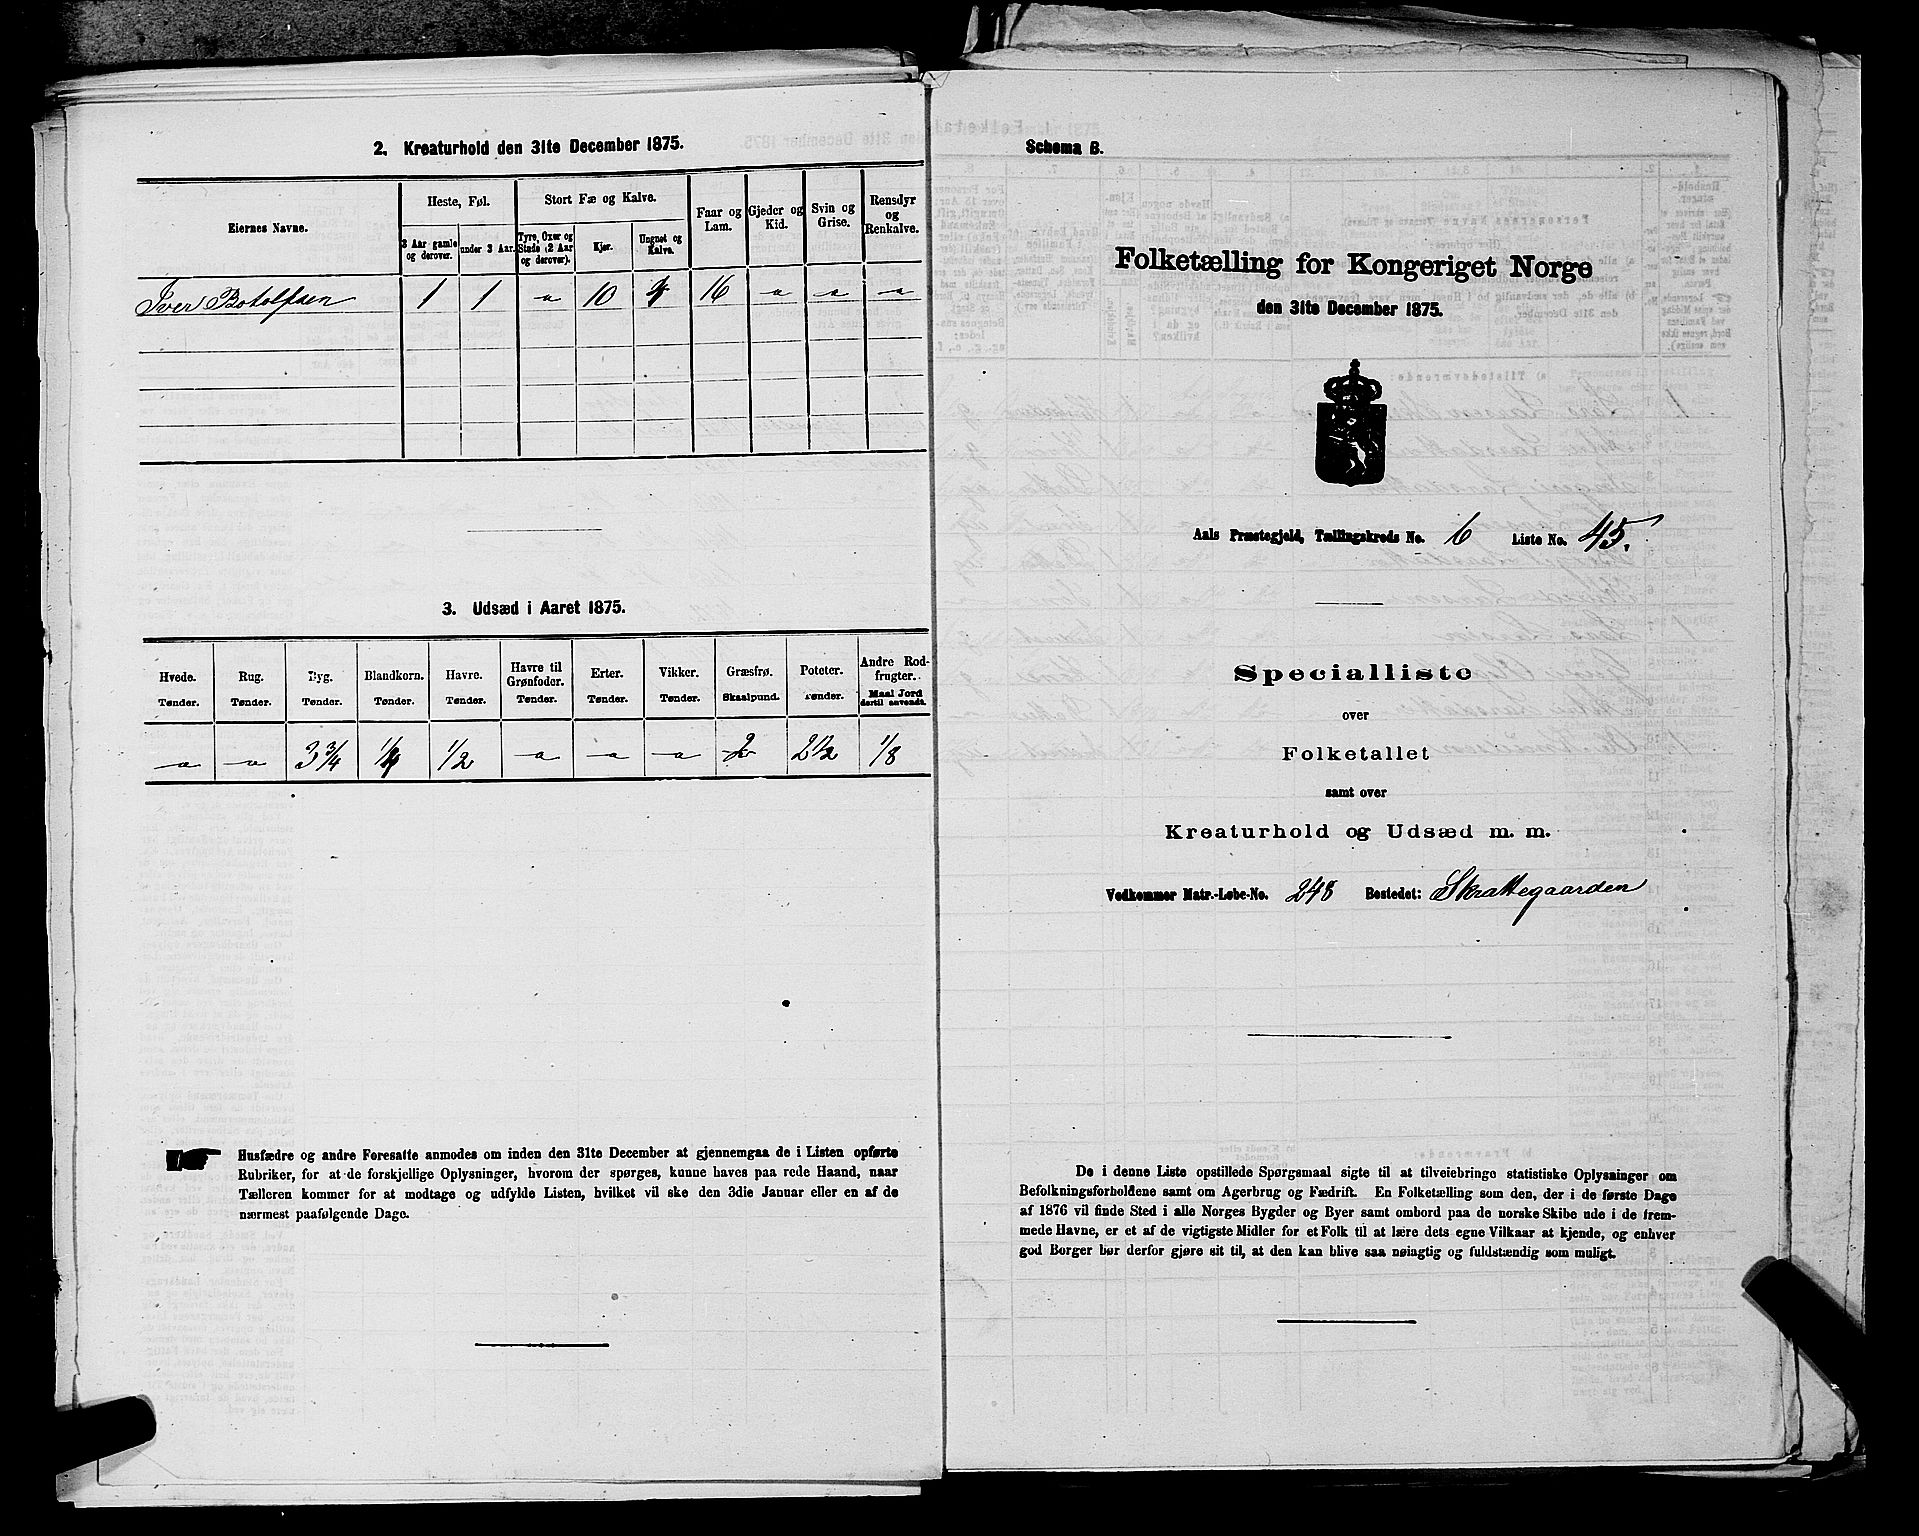 2. Kreaturhold den 31te December 1875.
Eiernes Navne.
Heste, Føl.
3 Aar gamle og derover.
under 3 Aar.
Stort Fæ og Kalve.
Tyre, Oxer og Stude (2 Aar og derover).
Kjør.
Ungnet og Kalve.
Faar og Lam.
Gjeder og Kid.
Svin og Grise.
Rensdyr og Renkalve.
Iver Botolfsen 1 1 " 10 16 " " "
3. Udsæd i Aaret 1875.
Hvede. Rug. Byg. Blandkorn. Havre. Havre til Grønfoder. Erter. Vikker. Græsfrø. Poteter. Andre Rodfrugter.
Tønder. Tønder. Tønder. Tønder. Tønder. Tønder. Tønder. Tønder. Skaalpund. Tønder. Maal Jord dertil anvendt.
" " 3 3/4 1/4 1/2 " " " 2 2 1/2 1/8
Husfædre og andre Foresatte anmodes om inden den 31te December at gjennemgaa de i Listen opførte
Rubriker, for at de forskjellige Oplysninger, hvorom der spørges, kunne haves paa rede Haand, naar
Tælleren kommer for at modtage og udfylde Listen, hvilket vil ske den 3die Januar eller en af de
nærmest paafølgende Dage.
Schema B.
Folketælling for Kongeriget Norge
den 31te December 1875.
Aals Præstegjeld, Tællingskreds No. 6 Liste No. 45.
Specialliste
over
Folketallet
samt over
Kreaturhold og Udsæd m. m.
Vedkommer Matr.-Løbe-No. 248 Bostedet: Skrattegaarden
De i denne Liste opstillede Spørgsmaal sigte til at tilveiebringe statistiske Oplysninger om
Befolkningsforholdene samt om Agerbrug og Fædrift. En Folketælling som den, der i de første Dage
af 1876 vil finde Sted i alle Norges Bygder og Byer samt ombord paa de norske Skibe ude i de frem-
mede Havne, er et af de vigtigste Midler for et Folk til at lære dets egne Vilkaar at kjende, og enhver
god Borger bør derfor gjøre sit til, at den kan blive saa nøiagtig og fuldstændig som muligt.